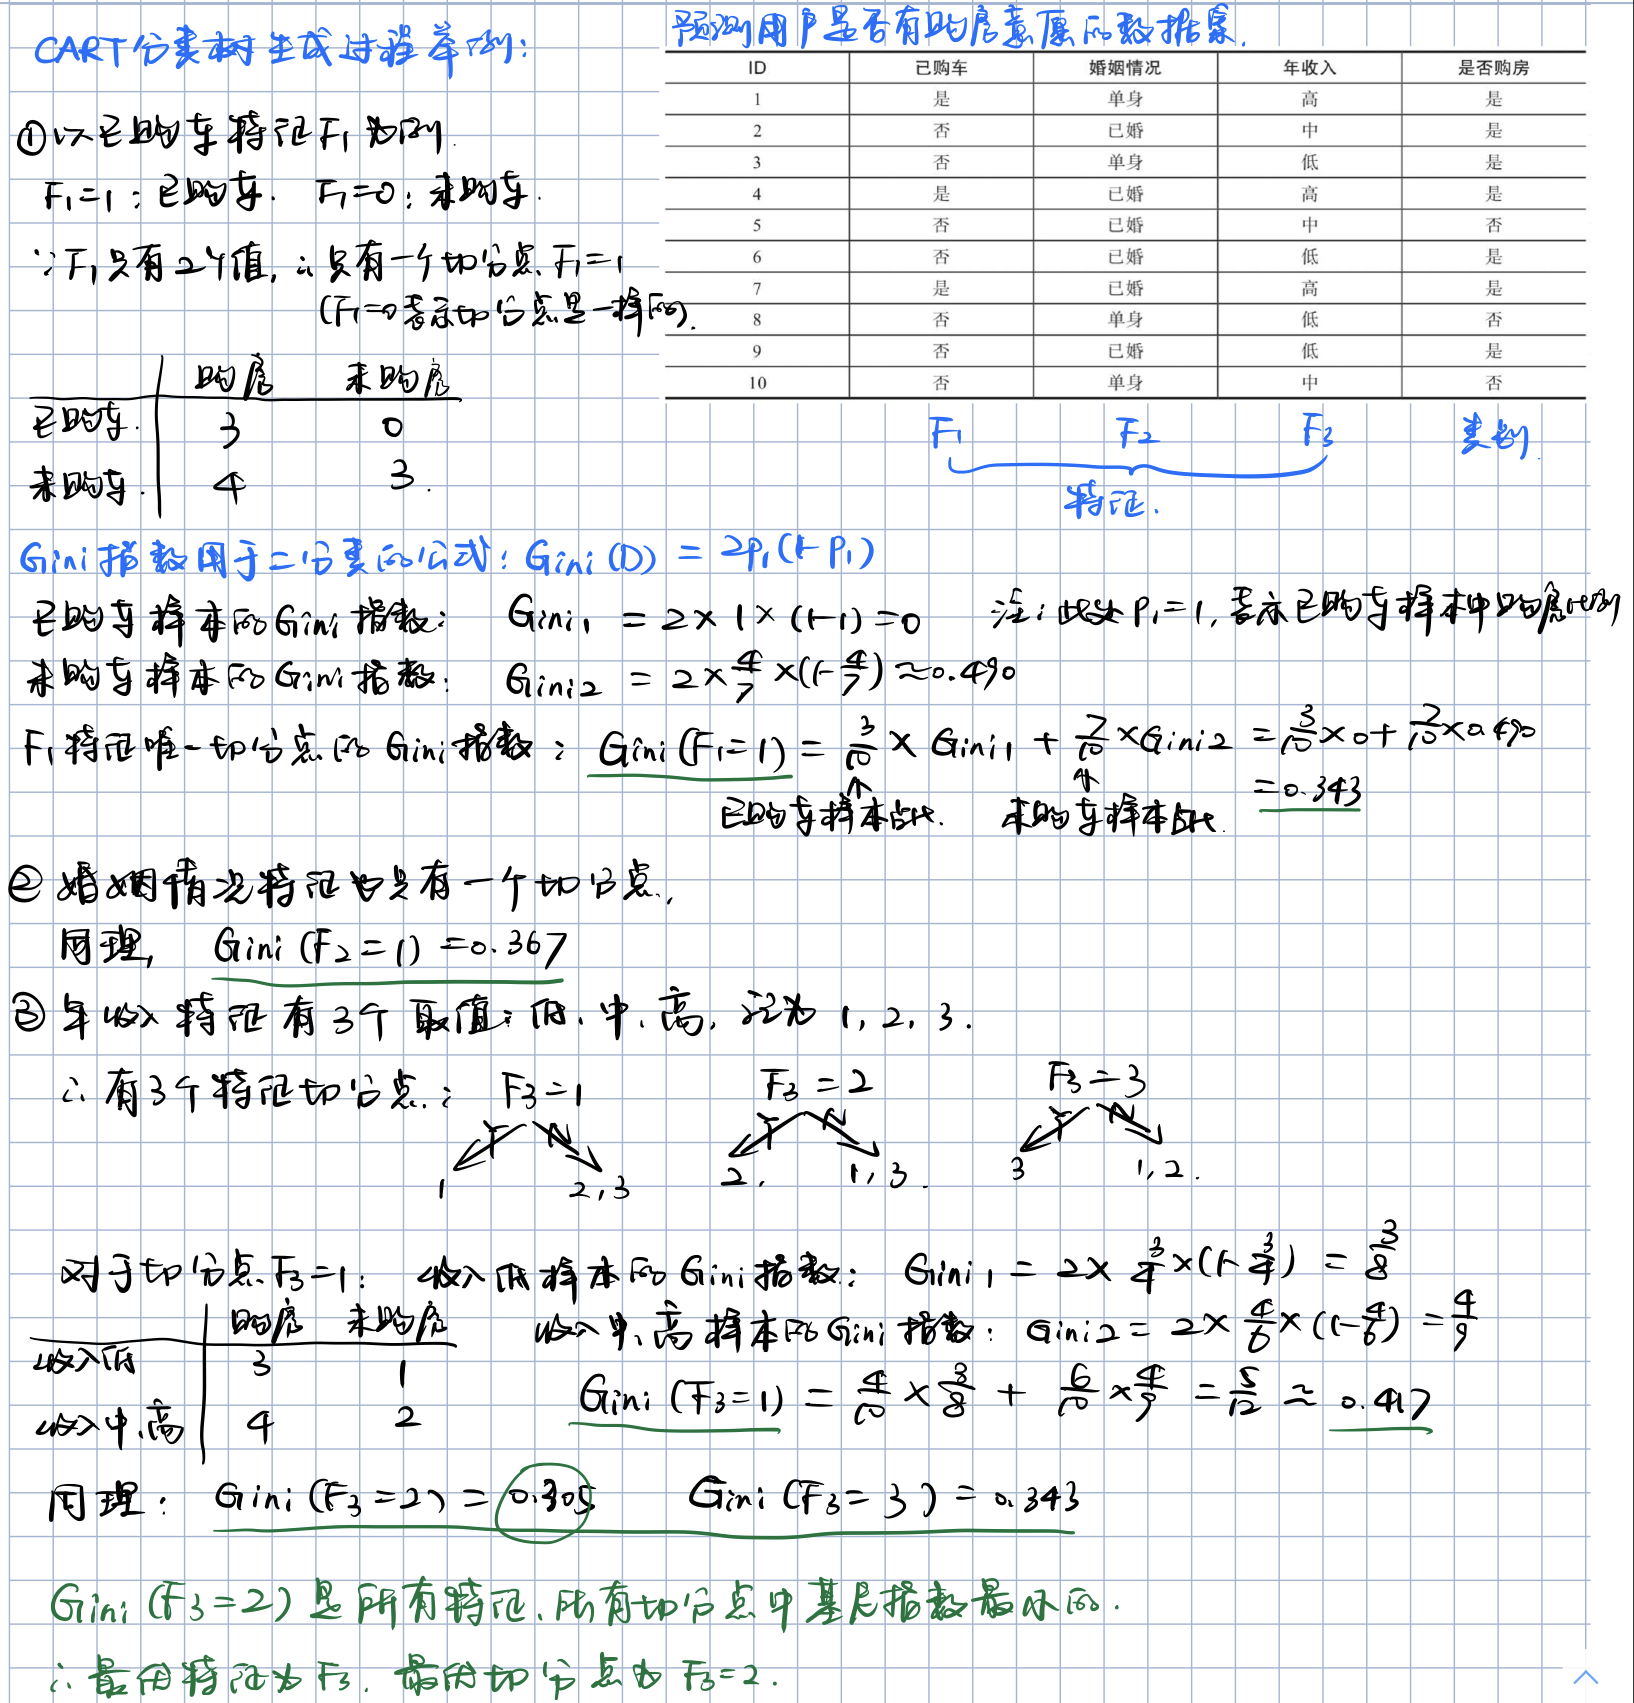 CART分类树生成过程举例:
预测用户是否有购房意愿的数据集.
ID 已购车 婚姻情况 年收入 是否购房
1 是 单身 高 是
2 否 已婚 中 是
3 否 单身 低 是
4 是 已婚 高 是
5 否 已婚 中 否
6 否 已婚 低 是
7 是 已婚 高 是
8 否 单身 低 否
9 否 已婚 低 是
10 否 单身 中 否
F1 F2 F3 类别
特征.
①以已购车特征F1为例.
F1=1:已购车. F1=0:未购车.
∵F1只有2个值,∴只有一个切分点F1=1
(F1=0表示切分点是一样的).
购房 未购房
已购车. 3 0
未购车. 4 3.
Gini指数用于二分类的公式:Gini(D) = 2p1(1-p1)
已购车样本的Gini指数: Gini1 = 2×1×(1-1)=0 注:此处P1=1,表示已购车样本中购房比例
未购车样本的Gini指数: Gini2 = 2×4/7×(1-4/7)≈0.490
F1特征唯一切分点的Gini指数: Gini(F1=1) = 3/10 × Gini1 + 7/10 ×Gini2 = 3/10×0+7/10×0.490
=0.343
已购车样本占比. 未购车样本占比.
② 婚姻情况特征也只有一个切分点,
同理, Gini(F2=1)=0.367
③ 年收入特征有3个取值:低、中、高,记为 1,2,3.
∴有3个特征切分点: F3=1 F3=2 F3=3
Y N Y N Y N
1 2,3 2. 1,3. 3 1,2.
对于切分点F3=1: 收入低样本的Gini指数: Gini1 = 2×3/4×(1-3/4) = 3/8
购房 未购房
收入低 3 1
收入中、高 4 2
收入中、高样本的Gini指数: Gini2 = 2×4/6×(1-4/6) = 4/9
Gini(F3=1) = 4/10 × 3/8 + 6/10 × 4/9 = 5/12 ≈ 0.417
同理: Gini(F3=2) = 0.305 Gini(F3=3) = 0.343
Gini(F3=2)是所有特征、所有切分点中基尼指数最小的.
∴最优特征为F3. 最优切分点为F3=2.